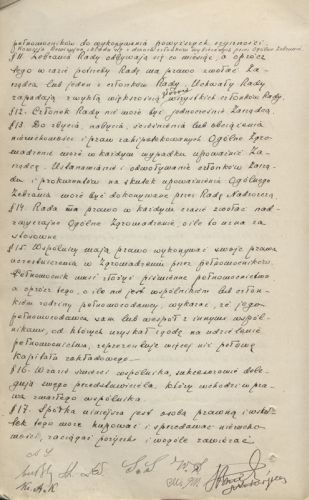 pełnomocników do wykonywania powyższych czynności.
§11. Zebrania Rady odbywają się co miesiąc, a oprócz
tego w razie potrzeby Rady ma prawo zwołać Za-
rządca lub jeden z członków Rady. Uchwały Rady
zapadają zwykłą większością głosów wszystkich członków Rady.
§12. Członek Rady nie może być jednocześnie Zarządcą.
§13. Do zbycia, nabycia, lub obciążenia
nieruchomości i praw zahipotekowanych Ogólne Zgro-
madzenie może w każdym wypadku upoważnić Za-
rządcę. Ustanawianie i odwoływanie członków Zarzą-
du i prokurentów na skutek upoważnienia Ogólnego
Zebrania może być dokonywane przez Radę Nadzorczą.
§14. Rada ma prawo w każdym czasie zwołać nad-
zwyczajne Ogólne Zgromadzenie, o ile to uzna za
stosowne.
§15. Wspólnicy mają prawo wykonywać swoje prawa
uczestniczenia w Zgromadzeniu przez pełnomocników.
Pełnomocnik musi złożyć piśmienne pełnomocnictwo
a oprócz tego, o ile nie jest wspólnikiem lub człon-
kiem rodziny pełnomocodawcy, wykazać, że jego
pełnomocodawca sam lub wespół z innymi wspól-
nikami, od których uzyskał zgodę na udzielenie
pełnomocnictwa, reprezentuje więcej niż połowę
kapitału zakładowego.
§16. W razie śmierci wspólnika, sukcesorowie dele-
gują swego przedstawiciela, który wchodzi w pra-
wa zmarłego wspólnika.
§17. Spółka niniejsza jest osobą prawną i wsku-
tek tego może kupować i sprzedawać nierucho-
mości, zaciągać pożyczki i wogóle zawierać